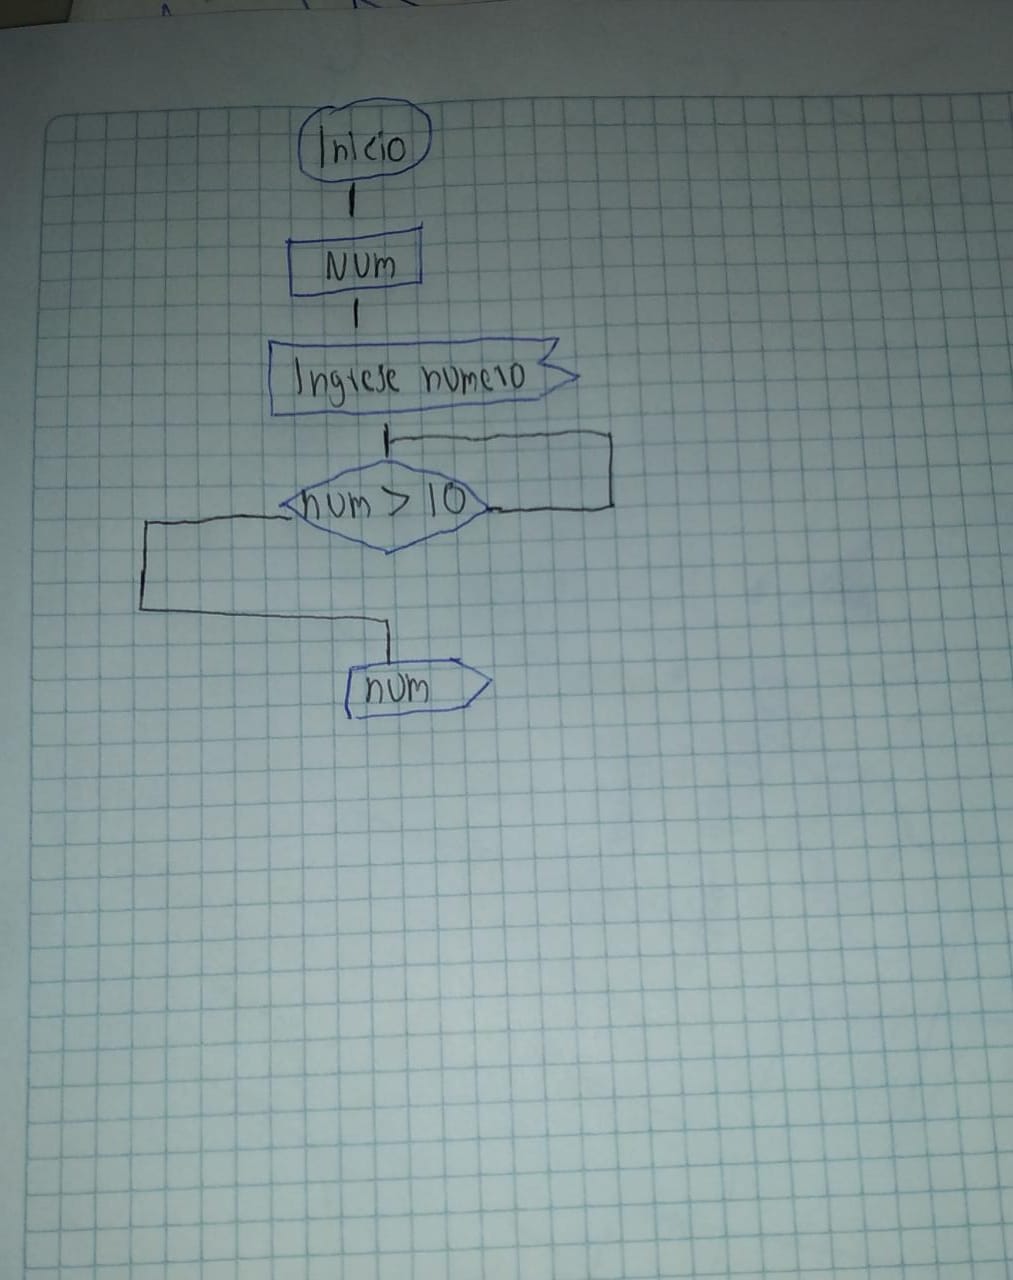 Inicio
NUm
Ingrese numero
num > 10
num